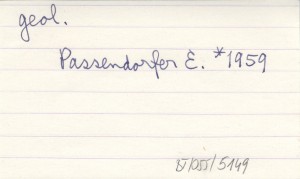 geol.
Passendorfer E. *1959
IV/055/5149